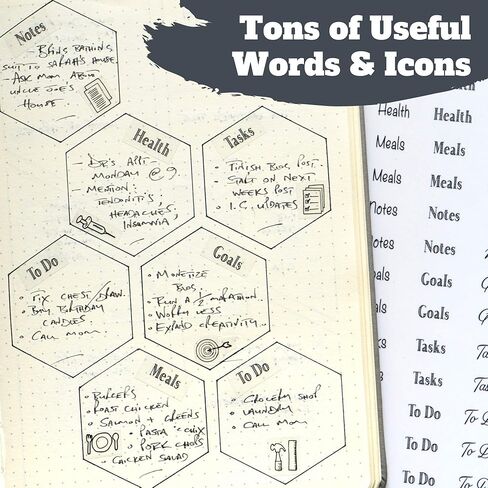 Tons of Useful
Words & Icons
Notes
- BRING BATHING
SUIT TO SARAH'S HOUSE
- ASK MOM ABOUT
UNCLE JOE'S
HOUSE.
Health
- DR'S APPT -
MONDAY @ 9.
- MENTION:
TENDONITIS,
HEADACHES,
INSOMNIA
Tasks
• FINISH BLOG POST.
• START ON NEXT
WEEKS POST
• I.G. UPDATES
To Do
• FIX CHEST/DRAW.
• BUY BIRTHDAY
CANDLES.
• CALL MOM.
Goals
• MONETIZE
BLOG.
• RUN A 1/2 MARATHON.
• WORRY LESS
• EXPAND CREATIVITY.
Meals
• BURGERS
• ROAST CHICKEN
• SALMON + GREENS
• PASTA C CHIX
• PORK CHOPS
• CHICKEN SALAD
To Do
• GROCERY SHOP
• LAUNDRY
• CALL MOM
Health Health
Meals Meals
Meals Meals
Notes Notes
otes Notes
als Goals
als Goals
ks Tasks Ta
s Tasks Tas
To Do To
To Do To D
To Do To D